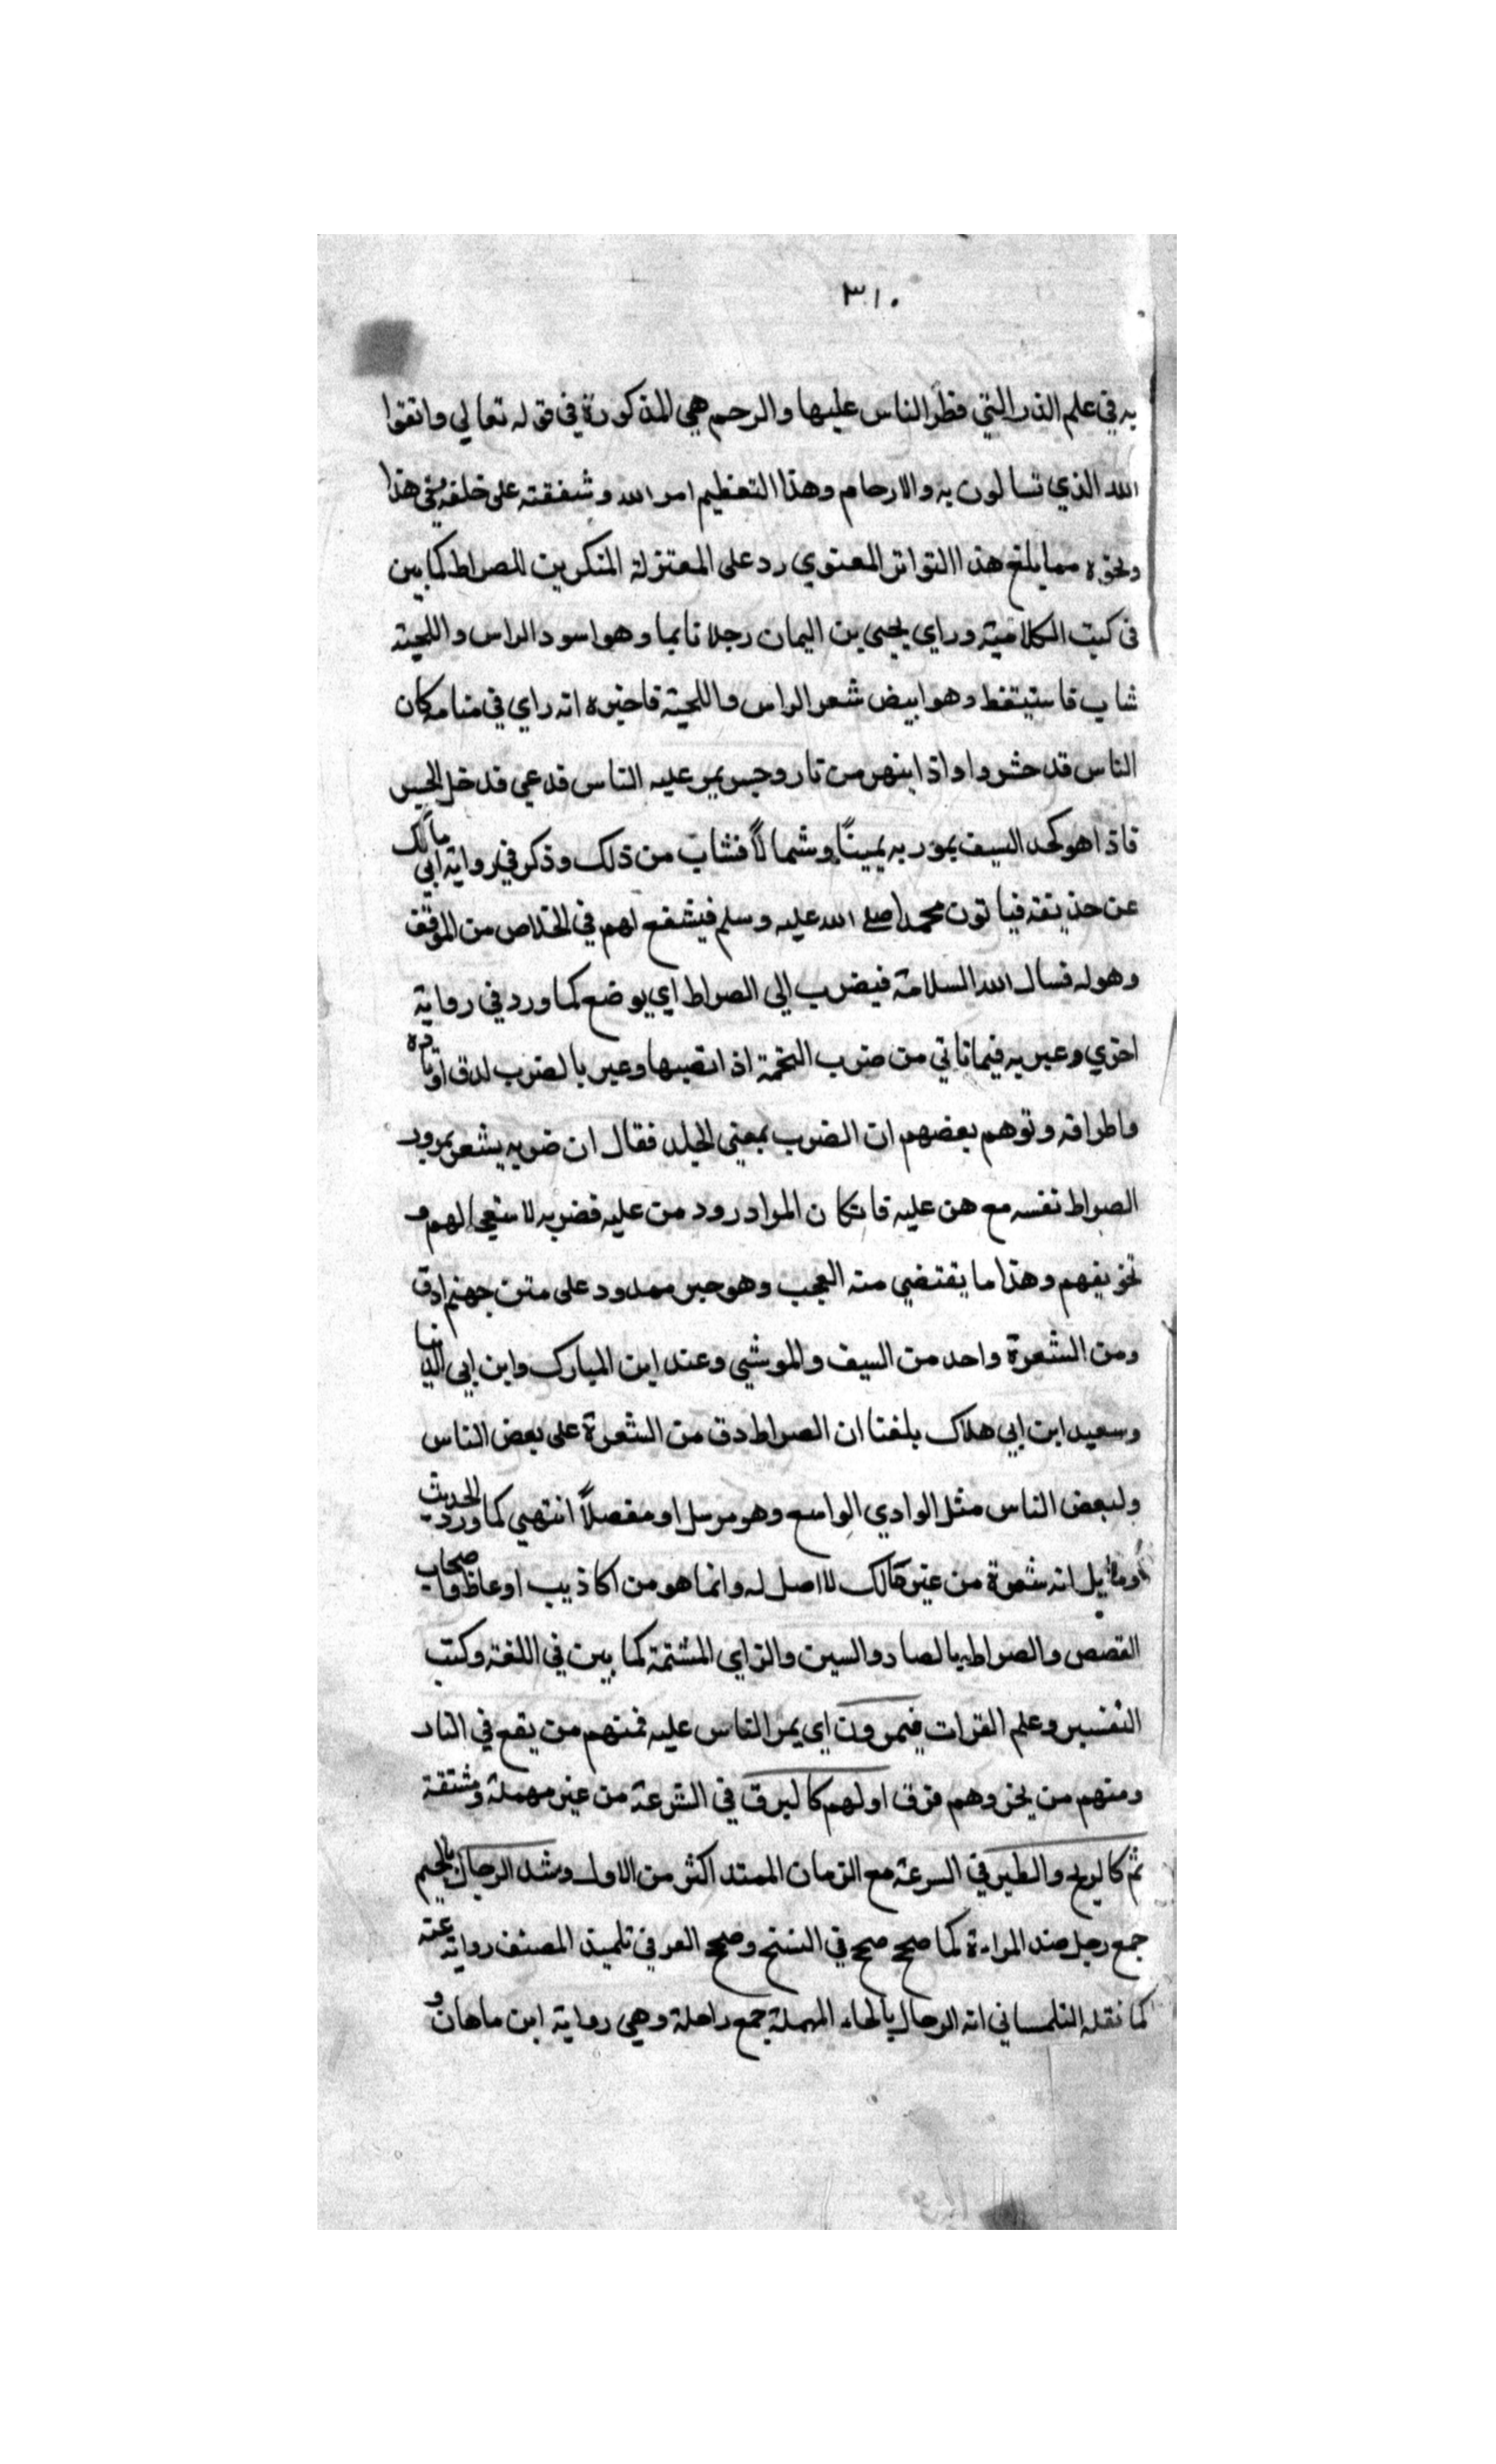 ٣١٠
به في علم الذر التي فطر الناس عليها والرحم هي المذكورة في قوله تعالي واتقوا
الله الذي تسالون به والارحام وهذا التعظيم امر الله وشفقته على خلقه في هذا
ونحوه مما يلغ هذا التواتر المعنوي رد على المعتزلة المنكرين للصراط كما بين
في كتب الكلامية وراي يحيى بن اليمان رجلا نايما وهو اسود الراس واللحية
شاب فاستيقظ وهو ابيض شعر الراس واللحية فاخبره انه راي في منامه كان
الناس قد حشروا واذا بنهر من نار وجسر يمر عليه الناس فدعي فدخل الجسر
فاذا هو كحد السيف يمور به يمينًا وشمالًا فشاب من ذلك وذكر في رواية ابي مالك
عن حذيفة فياتون محمدا صلى الله عليه وسلم فيشفع لهم في الخلاص من الموقف
وهوله فسال الله السلامة فيضرب الى الصراط اي يوضع كما ورد في رواية
اخري وعبر به فيما ناتي من ضرب الخيمة اذا نصبها وعبر بالضرب لدق اوتاده
واطرافه وتوهم بعضهم ان الضرب بمعنى الجلد فقال ان ضربه يشعر بمرور
الصراط نفسه مع من عليه فانكان المراد رود من عليه فضربه لا ستعجالهم و
تخويفهم وهذا ما يقتضي منه العجب وهو جسر ممدود على متن جهنم ادق
ومن الشعرة واحد من السيف والموشي وعند ابن المبارك وابن ابي الدنيا
وسعيد ابن ابي هلاك بلغنا ان الصراط دق من الشعرة على بعض الناس
ولبعض الناس مثل الوادي الواسع وهو مرسل او مفصلاً انتهي كما ورد الحديث
وما قيل انه شعرة من عين مالك لا اصل له وانما هو من اكاذيب اوعاظ واصحاب
القصص والصراط بالصاد والسين والزاي المشتمة كما بين في اللغة وكتب
التفسير وعلم القرات فيمرون اي يمر الناس عليه فمنهم من يقع في النار
ومنهم من ينجو وهم فرق اولهم كالبرق في السرعة من غير مهملة ومشتقة
ثم كالريح والطير في السرعة مع الزمان الممتد اكثر من الاول وشد الرجال بالجيم
جمع رجل ضد المراءة كما صحح صح في النسخ وصحح العرفي تلميذ المصنف رواية عنه
كما نقله التلمساني انه الرحال بالحاء المهملة جمع راحلة وهي رواية ابن ماهان و